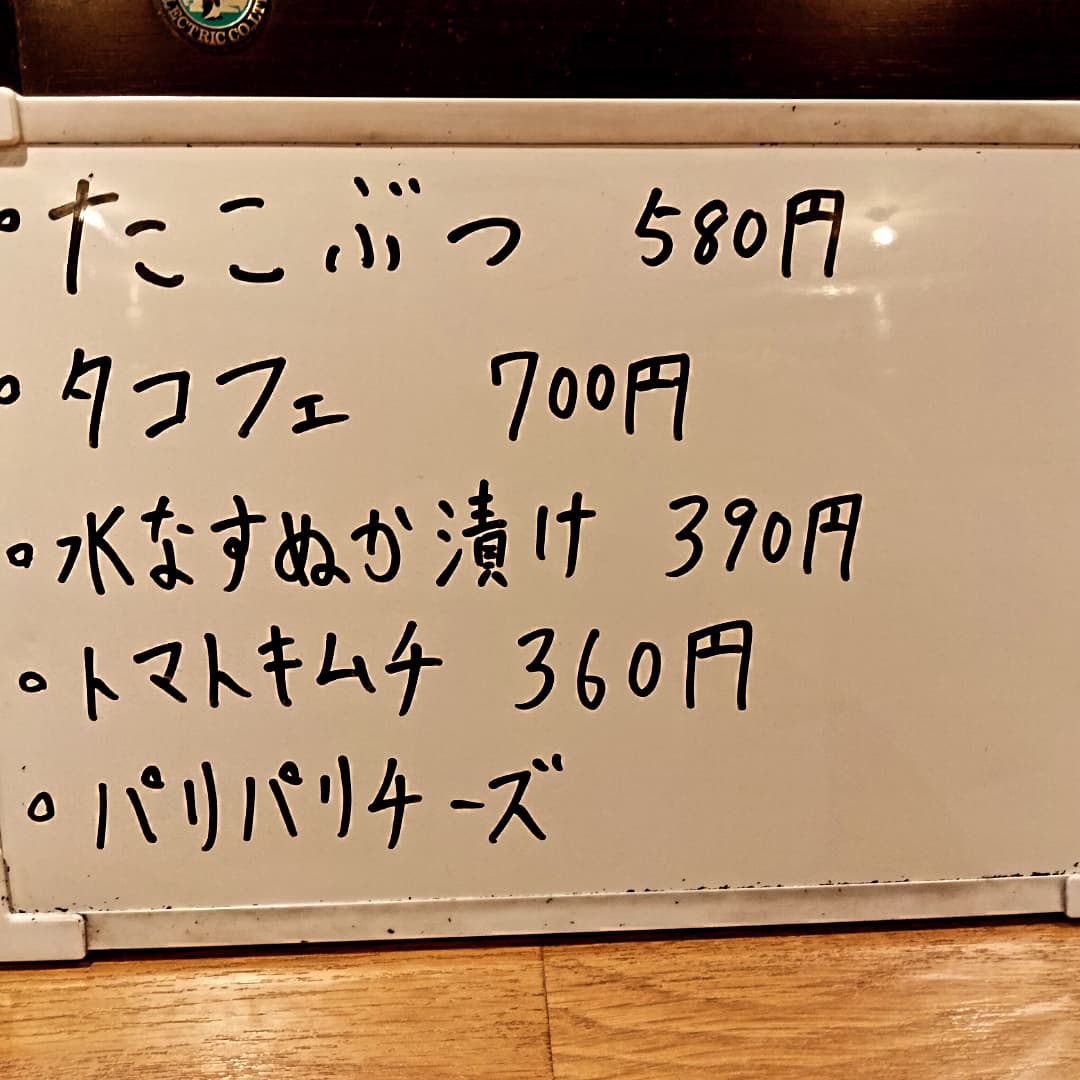 ECTRIC CO.LT
。たこぶつ 580円
。タコフェ 700円
。水なすぬか漬け 390円
。トマトキムチ 360円
。パリパリチーズ